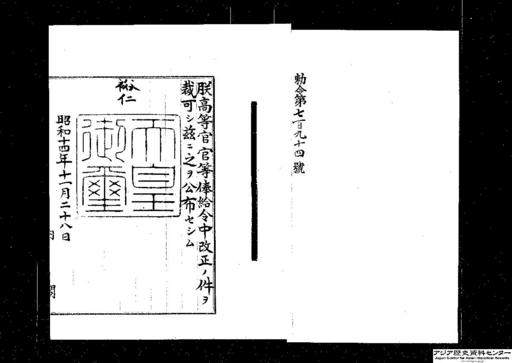 勅令第七百九十四號
朕高等官官等俸給令中改正ノ件ヲ
裁可シ茲ニ之ヲ公布セシム
裕仁
天皇
御璽
昭和十四年十一月二十八日
内閣
アジア歴史資料センター
Japan Center for Asian Historical Records